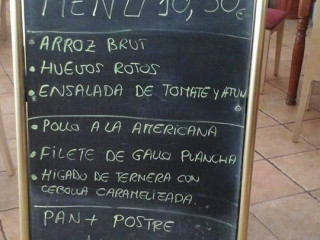 MENÚ 10,50€
• ARROZ BRUT
• HUEVOS ROTOS
• ENSALADA DE TOMATE Y ATUN
• POLLO A LA AMERICANA
• FILETE DE GALLO PLANCHA
• HIGADO DE TERNERA CON
CEBOLLA CARAMELIZADA.
PAN + POSTRE